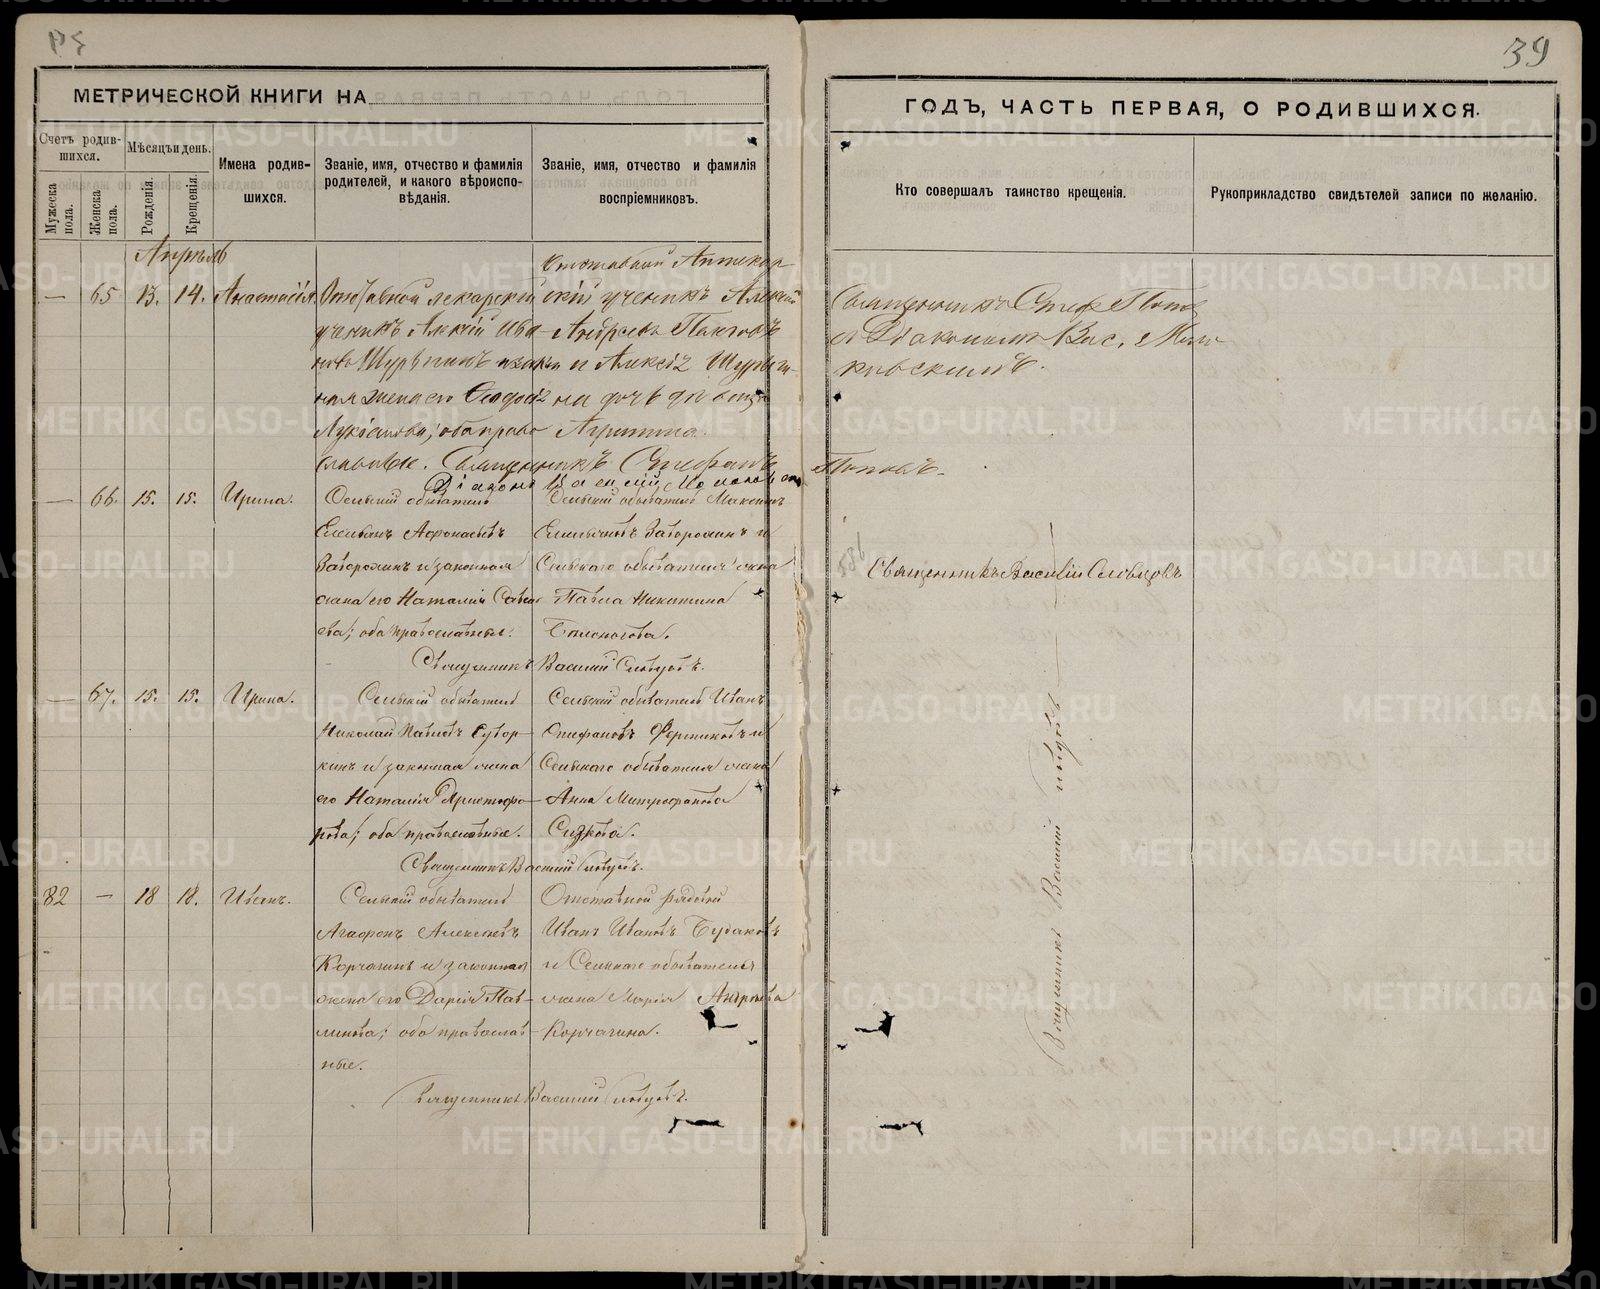 39
МЕТРИЧЕСКОЙ КНИГИ НА
ГОДЪ, ЧАСТЬ ПЕРВАЯ, О РОДИВШИХСЯ.
Счетъ родив-
шихся.
Мѣсяцъ и день.
Имена родив-
шихся.
Званіе, имя, отчество и фамилія
родителей, и какого вѣроиспо-
вѣданія.
Званіе, имя, отчество и фамилія
воспріемниковъ.
Кто совершалъ таинство крещенія.
Рукоприкладство свидѣтелей записи по желанію.
Мужеска
пола.
Женска
пола.
Рожденія.
Крещенія.
Апрѣль
— 65 13. 14. Анастасія
Отставной лекарскій
ученикъ Алексій Ива-
новъ Шурыгинъ и закон
ная жена его
оба право
славные.
Отставной Аптекар
скій ученикъ Алексій
Андреевъ
и Алексія Шурыги-
на дочь дѣвица
Агриппина.
Священникъ Стефанъ Поповъ.
Священникъ Стеф. Попов
съ Діакономъ Вас.
— 66. 15. 15. Ирина.
Сельскій обыватель
Емельянъ Аѳонасьевъ
Заворохинъ и законная
жена его Наталия Савель
ева; оба православные.
Сельскій обыватель Максимъ
Емельяновъ Заворохинъ и
Сельскаго обывателя жена
Павла Никитина
Священникъ Василій Словцовъ.
Священникъ Василій Словцовъ
— 67. 15. 15. Ирина.
Сельскій обыватель
Николай Павловъ Сувор-
кинъ и законная жена
его Наталия Христофо-
рова; оба православные.
Сельскій обыватель Иванъ
Епифановъ Ферниковъ и
Сельскаго обывателя жена
Анна Митрофанова
Сизкова.
Священникъ Василій Словцовъ.
82 — 18 18. Иванъ.
Сельскій обыватель
Агафонъ Алексѣевъ
Корчагинъ и законная
жена его Дарія Пав-
линова; оба православ-
ные.
Отставной рядовой
Иванъ Ивановъ Будаковъ
и Сельскаго обывателя
жена Марія Андреева
Корчагина.
Священникъ Василій Словцовъ.
Священникъ Василій Словцовъ
METRIKI.GASO-URAL.RU